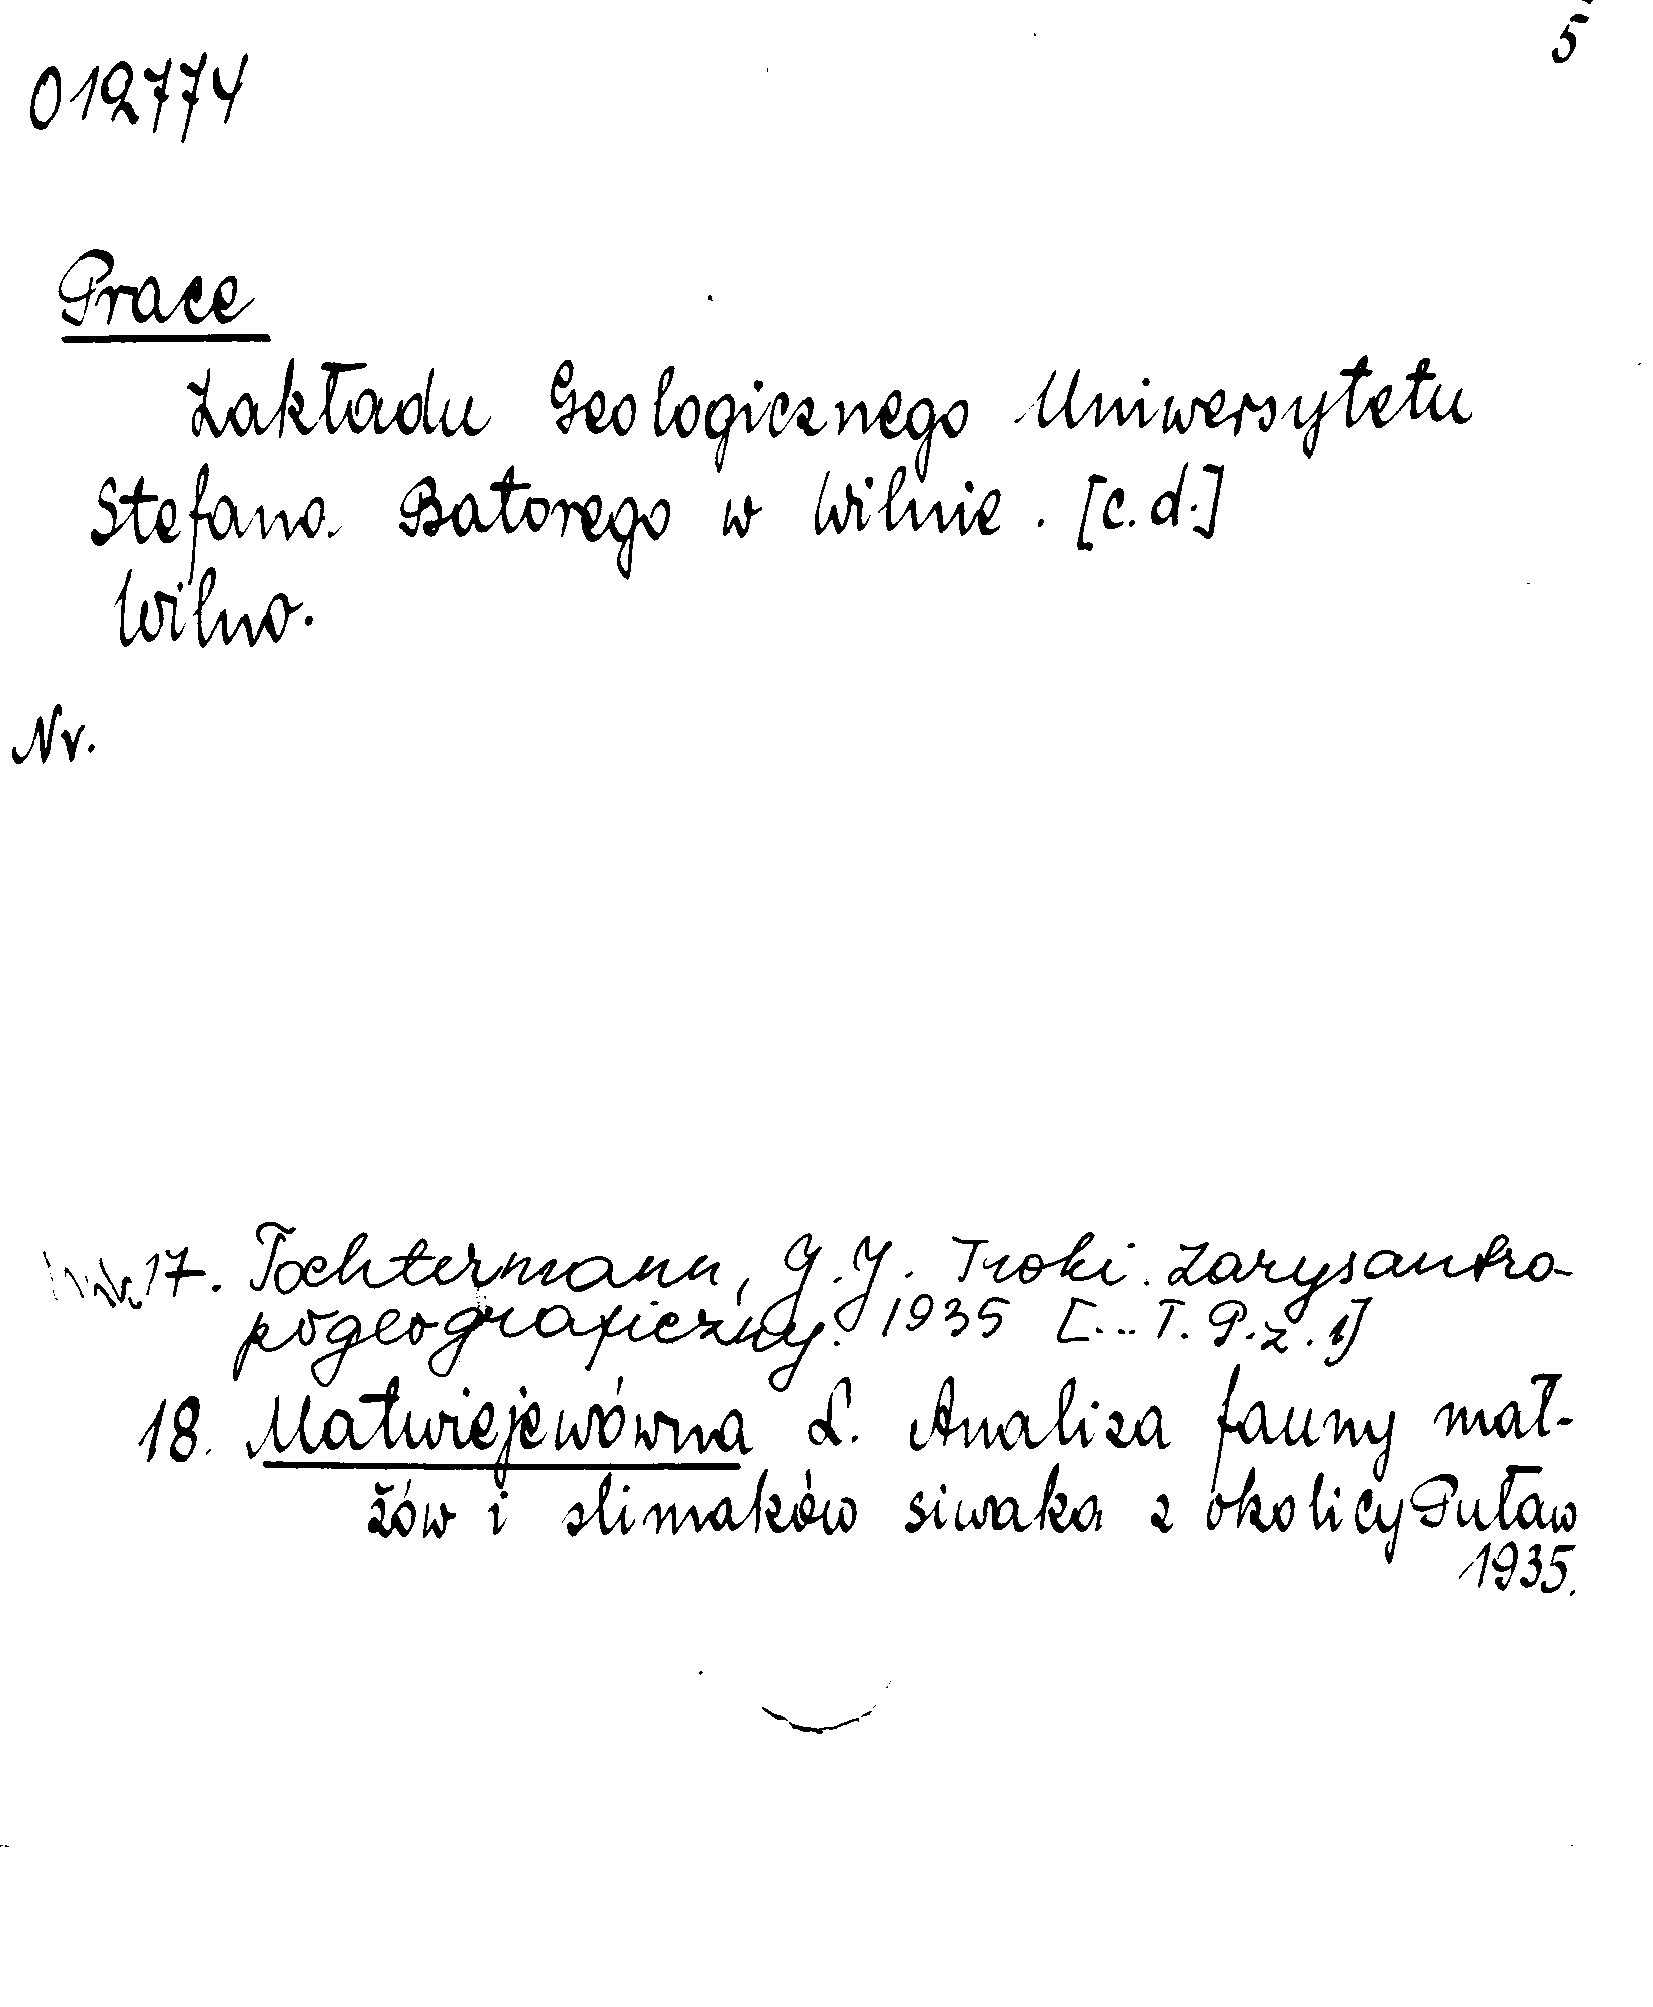 5
012774
Prace
Zakładu Geologicznego Uniwersytetu
Stefana Batorego w Wilnie. [c.d.]
Wilno.
Nr.
17. Tochtermann, J.J. Troki. Zarys antro-
pogeograficzny. 1935 [... T. P. z. 1]
18. Matwiejewówna L. Analiza fauny mał-
żów i ślimaków siwaka z okolicy Puław
1935.